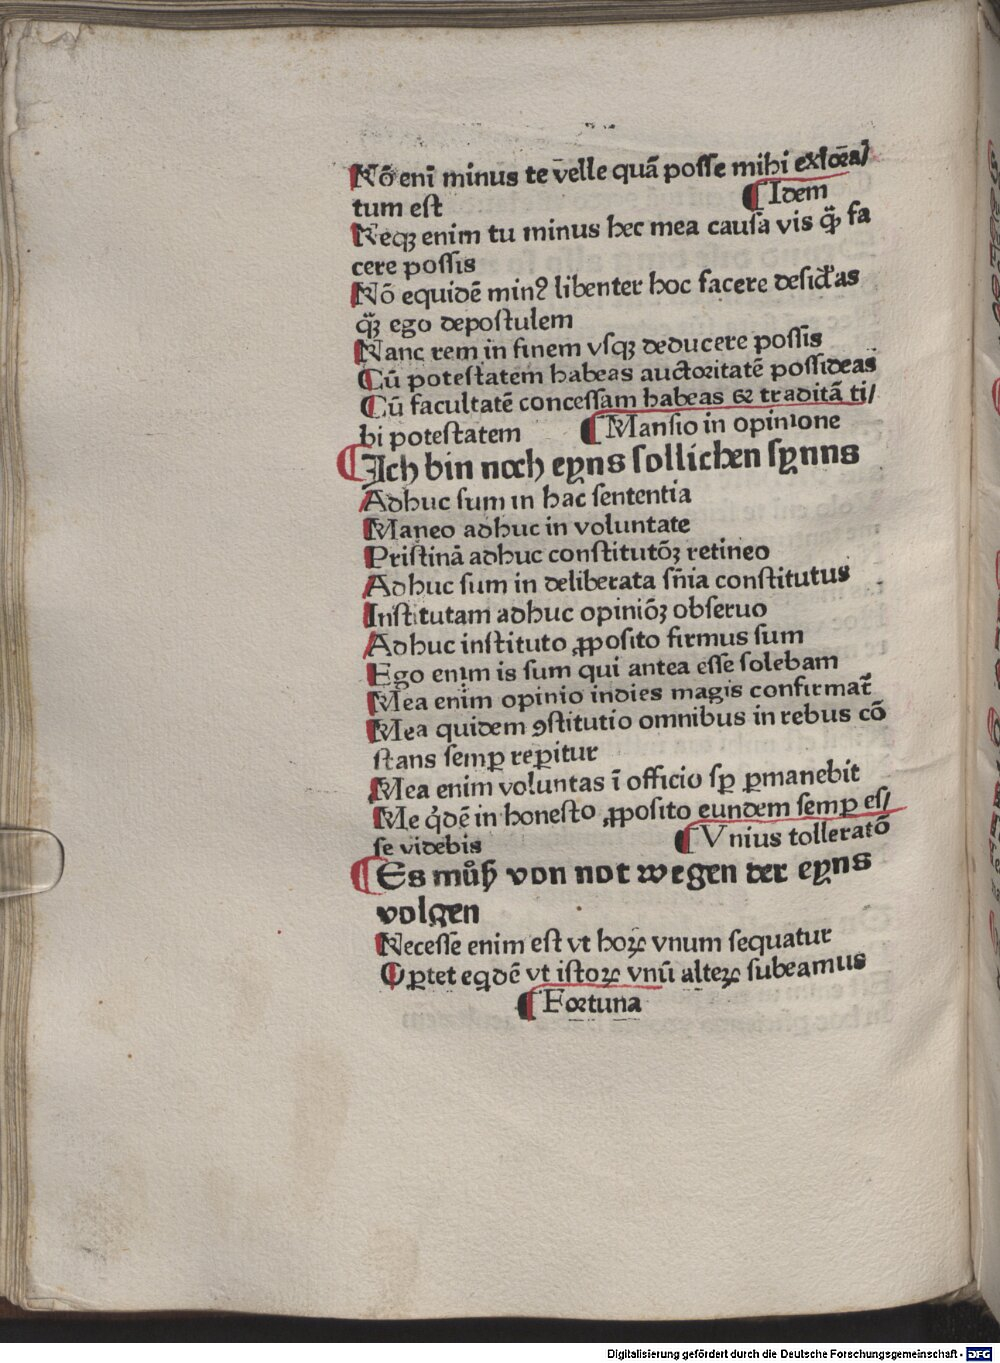 Nō eni minus te velle quā posse mihi exlōra/
tum est ¶Idem
Neqꝫ enim tu minus hec mea causa vis qꝫ̃ fa
cere possis
Nō equidē minꝰ libenter hoc facere desid̓as
qꝫ̃ ego depostulem
Nanc rem in finem vsqꝫ deducere possis
Cū potestatem habeas auctoritatē possideas
Cū facultatē concessam habeas & traditā ti/
bi potestatem ¶Mansio in opinione
¶Ich bin noch eyns sollichen synns
Adhuc sum in hac sententia
Maneo adhuc in voluntate
Pristinā adhuc constitutōꝫ retineo
Adhuc sum in deliberata sñia constitutus
Institutam adhuc opiniōꝫ obseruo
Adhuc instituto ꝓposito firmus sum
Ego enim is sum qui antea esse solebam
Mea enim opinio indies magis confirmat᷑
Mea quidem ꝯstitutio omnibus in rebus cō
stans semꝑ reꝑitur
Mea enim voluntas ī officio sꝑ ꝑmanebit
Me q̇dē in honesto ꝓposito eundem semꝑ es/
se videbis ¶Vnius tolleratō
¶Es můß von not wegen der eyns
volgen
Necesse enim est vt hoꝝ vnum sequatur
Oꝑtet eqdē vt istoꝝ vnū alteꝝ subeamus
¶Fortuna
Digitalisierung gefördert durch die Deutsche Forschungsgemeinschaft - DFG